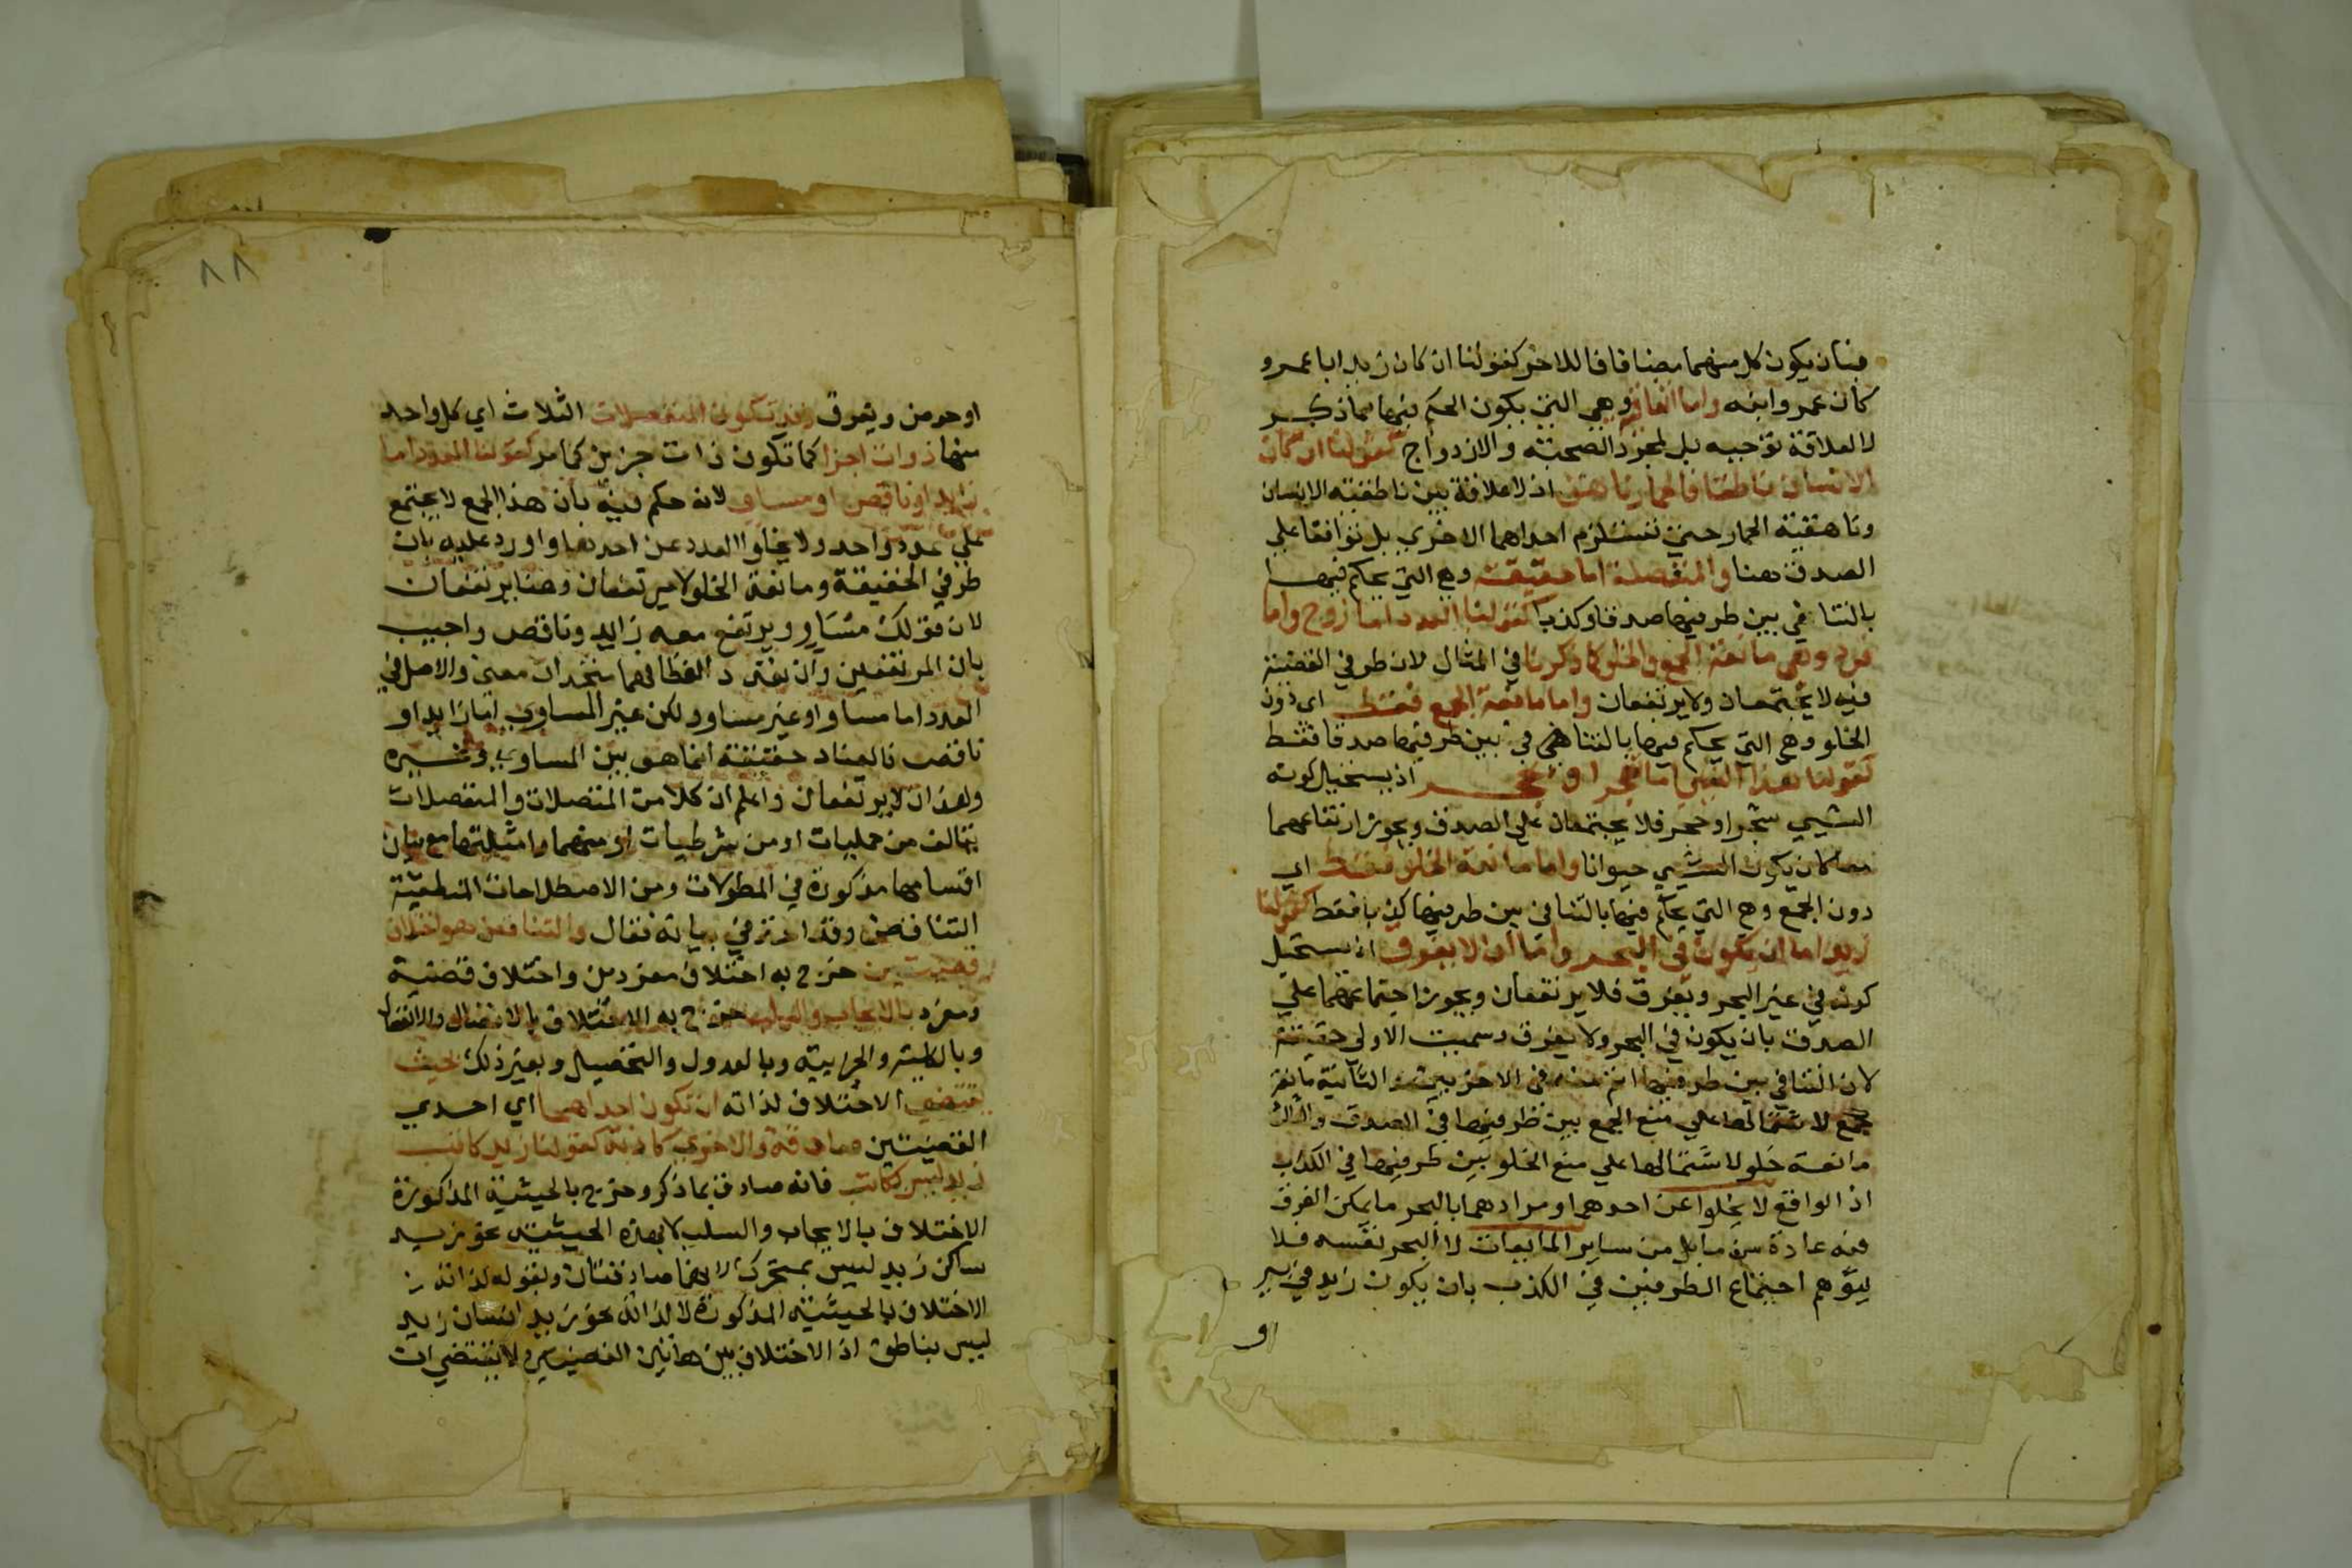 فبان يكون كل منهما مضافا للاخر كقولنا ان كان زيد ابا عمرو
كان عمرو ابنه واما اتفاقية وهي التي يكون الحكم فيها بما ذكر
لا لعلاقة توجبه بل لمجرد الصحبة والازدواج كقولنا ان كان
الانسان ناطقا فالحمار ناهق اذ لا علاقة بين ناطقية الانسان
وناهقية الحمار حتي تستلزم احداهما الاخري بل توافقا علي
الصدق هنا والمنفصلة اما حقيقية وهي التي يحكم فيها
بالتنافي بين طرفيها صدقا وكذبا كقولنا العدد اما زوج واما
فرد وهي مانعة الجمع والخلو كما ذكرنا في المثال لان طرفي القضية
فيه لا يجتمعان ولا يرتفعان واما مانعة الجمع فقط اي دون
الخلو وهي التي يحكم فيها بالتنافي بين طرفيها صدقا فقط
كقولنا هذا الشي اما شجر او حجر اذ يستحيل كونه
الشيي شجرا وحجر فلا يجتمعان علي الصدق ويجوز ارتفاعهما
معا كان يكون الشيي حيوانا واما مانعة الخلو فقط اي
دون الجمع وهي التي يحكم فيها بالتنافي بين طرفيها كذبا فقط كقولنا
زيد اما ان يكون في البحر واما ان لا يغرق اذ يستحيل
كونه في غير البحر ويغرق فلا يرتفعان ويجوز اجتماعهما علي
الصدق بان يكون في البحر ولا يغرق وسميت الاولي حقيقية
لان التنافي بين طرفيها اتم منه في الاخريين والثانية مانعة
جمع لاشتمالها علي منع الجمع بين طرفيها في الصدق والثالثة
مانعة خلو لاشتمالها علي منع الخلو بين طرفيها في الكذب
اذ الواقع لا يخلوا عن احدهما ومرادهم بالبحر ما يمكن الغرق
فيه عادة من ساير المايعات لا البحر نفسه فلا
يتوهم اجتماع الطرفين في الكذب بان يكون زيد في بير
او
٨٨
او حوض ويغرق وقد تكون المنفصلات الثلاث اي كل واحد
منها ذوات اجزا كما تكون ذات جزين كما مر كقولنا العدد اما
زايد او ناقص او مساو لانه حكم فيه بان هذا الجمع لا يجتمع
علي عدد واحد ولا يخلوا العدد عن احدها واورد عليه بان
طرفي الحقيقة ومانعة الخلو لا يرتفعان وهنا يرتفعان
لان قولك مساو ويرتفع معه زايد وناقص واجيب
بان المرتفعين وان تعددا لفظا فهما متحدان معني والاصل في
العدد اما مساو او غير مساو ولكن غير المساوي اما زايد او
ناقص فالعناد حقيقة انما هو بين المساوي وغيره
وهذان لا يرتفعان واعلم ان كلا من المتصلات والمنفصلات
يتالف من حمليات او من شرطيات او منهما وامثلتها مع بيان
اقسامها مذكورة في المطولات ومن الاصطلاحات المنطقية
التناقض وقد اخذ في بيانه فقال والتناقض هو اختلاف
قضيتين خرج به اختلاف مفردين واختلاف قضية
ومفرد بالايجاب والسلب خرج به الاختلاف بالاتصال والانفصال
وبالكلية والجزايية وبالعدول والتحصيل وبغير ذلك بحيث
يقتضي الاختلاف لذاته ان تكون احداهما اي احدي
القضيتين صادقة والاخري كاذبة كقولنا زيد كاتب
زيد ليس بكاتب فانه صادق بما ذكر وخرج بالحيثية المذكورة
الاختلاف بالايجاب والسلب لا بهذه الحيثية نحو زيد
ساكن زيد ليس بمتحرك لانهما صادقتان وبقوله لذاته
الاختلاف بالحيثية المذكورة لا لذاته نحو زيد انسان زيد
ليس بناطق اذ الاختلاف بين هاتين القضيتين لا يقتضي ان